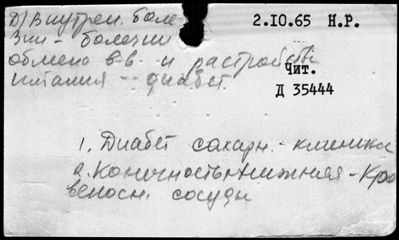 Д) Внутрен. боле-
зни - болезни
обмена в-в и растройств
питания -- диабет.
2.IO.65 Н.Р.
Чит.
Д 35444
1. Диабет сахарн. - клиника
2. Конечность нижняя - Кро
веносн. сосуды